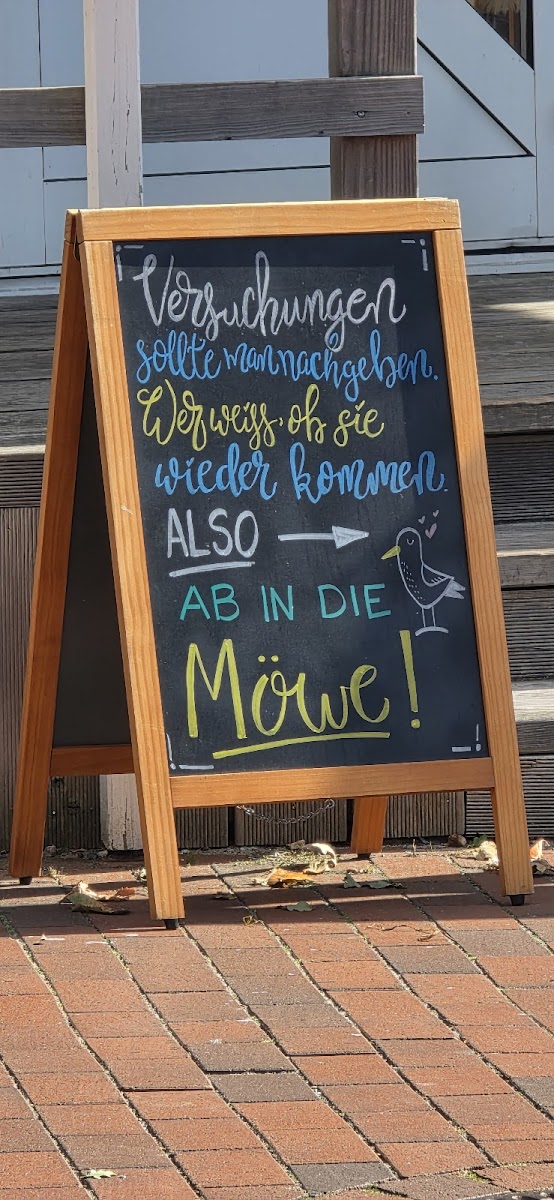 Versuchungen
sollte man nachgeben.
Wer weiss, ob sie
wieder kommen.
ALSO
AB IN DIE
Möwe!